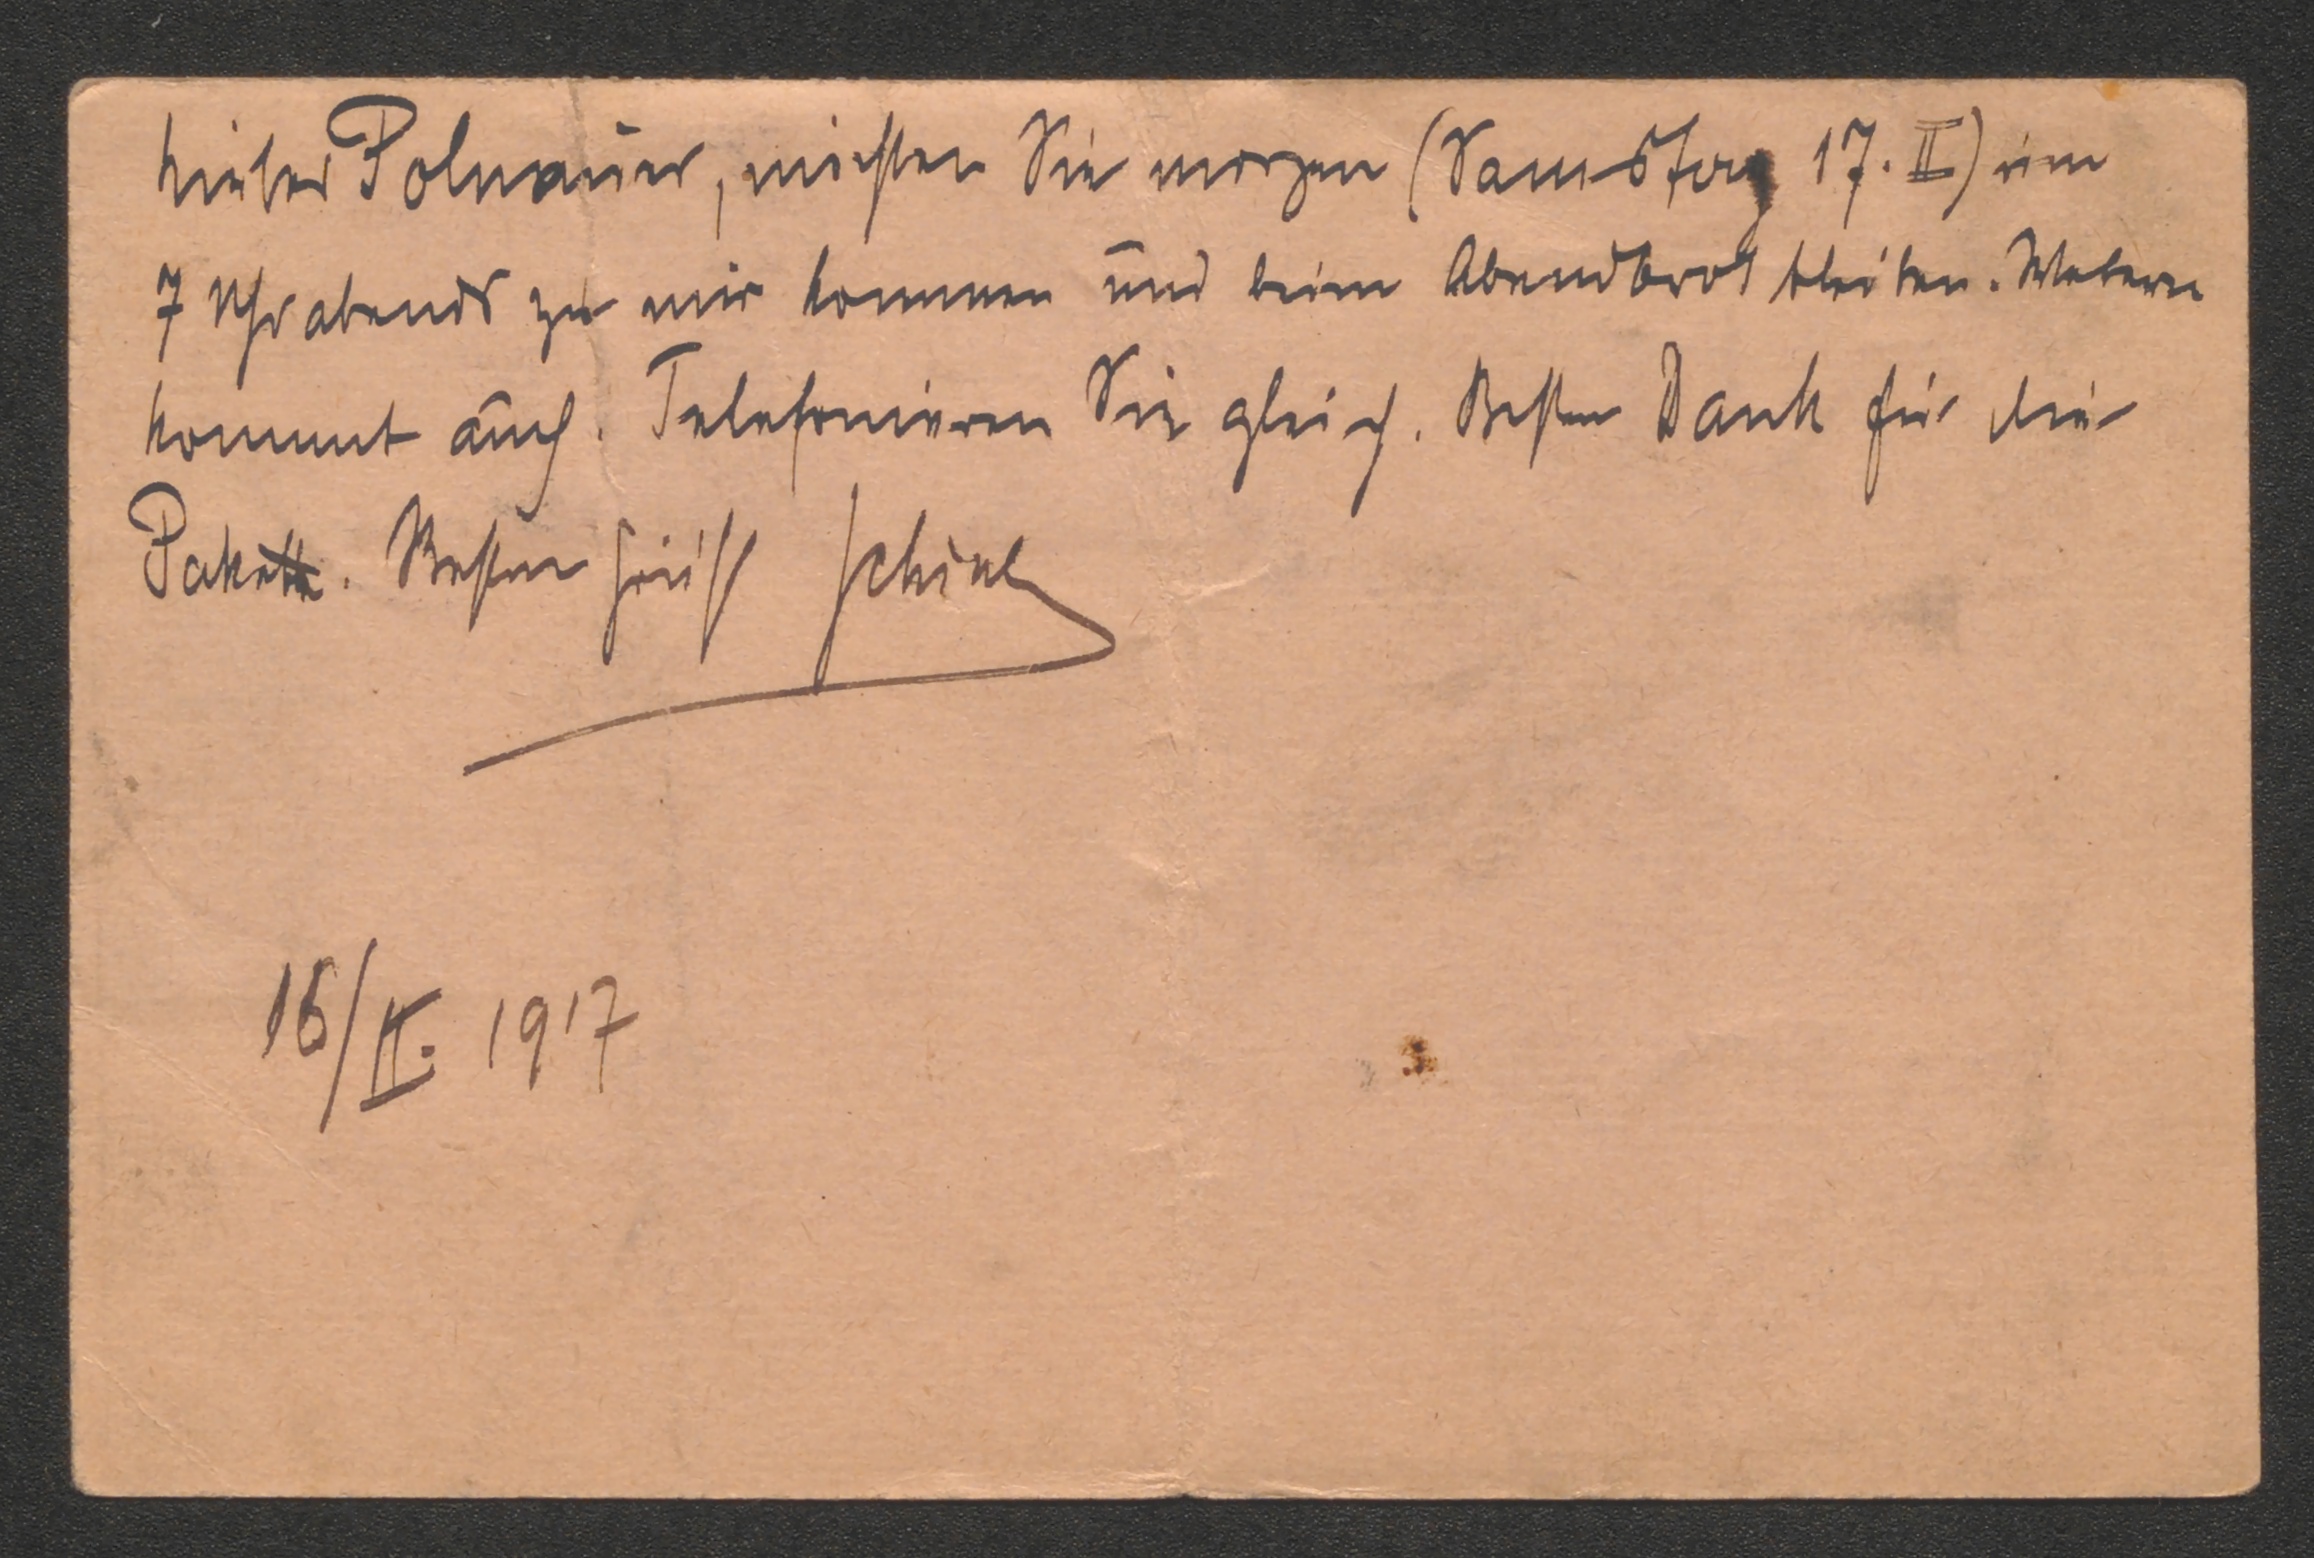 Lieber Polnauer, möchten Sie morgen (Samstag 17. II) um
7 Uhr abends zu mir kommen und beim Abendbrot bleiben. Webern
kommt auch. Telefonieren Sie gleich. Besten Dank für die
Pakette. Besten Gruß Schönbg
16/II. 1917